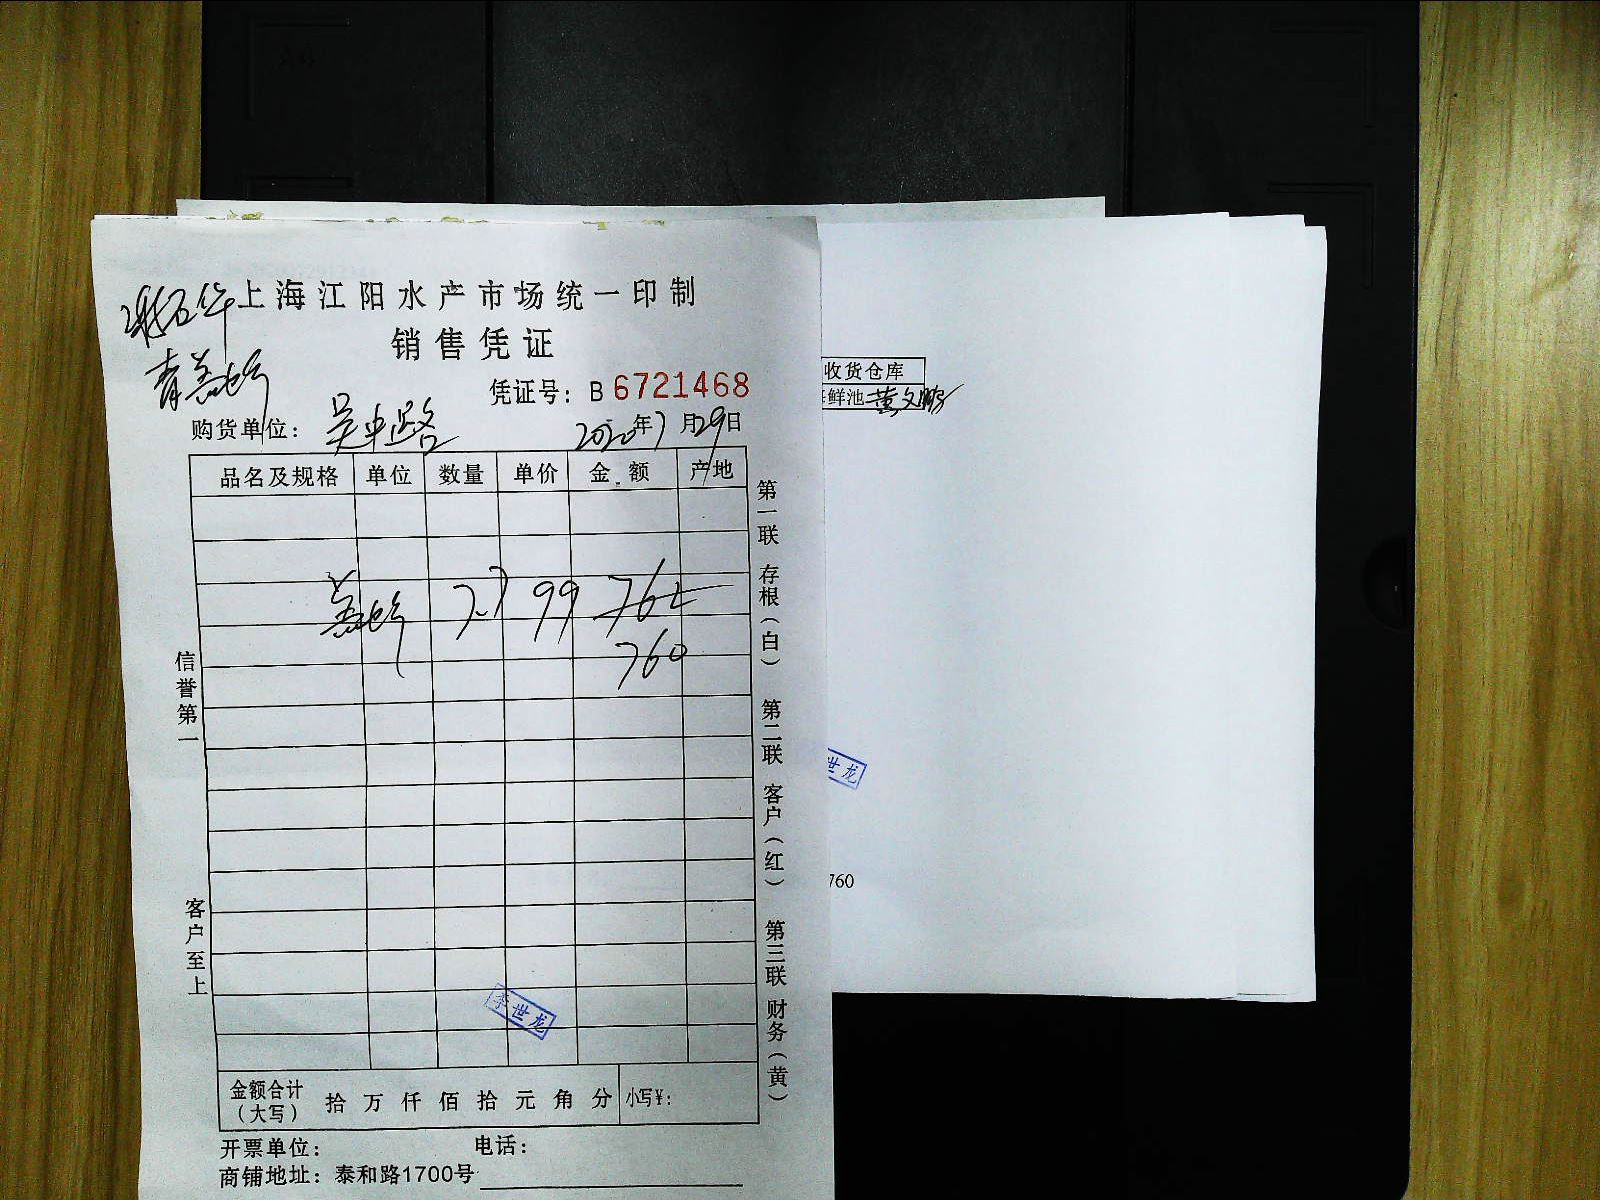 上海江阳水产市场统一印制
销售凭证
凭证号：B 6721468
购货单位：吴中路 2020年7月29日
品名及规格 单位 数量 单价 金额 产地
7.7 99 762
760
信誉第一
客户至上
第一联 存根（白） 第二联 客户（红） 第三联 财务（黄）
李世龙
金额合计（大写） 拾万仟佰拾元角分 小写¥：
开票单位： 电话：
商铺地址：泰和路1700号
收货仓库
海鲜池 黄文鹏
世龙
760